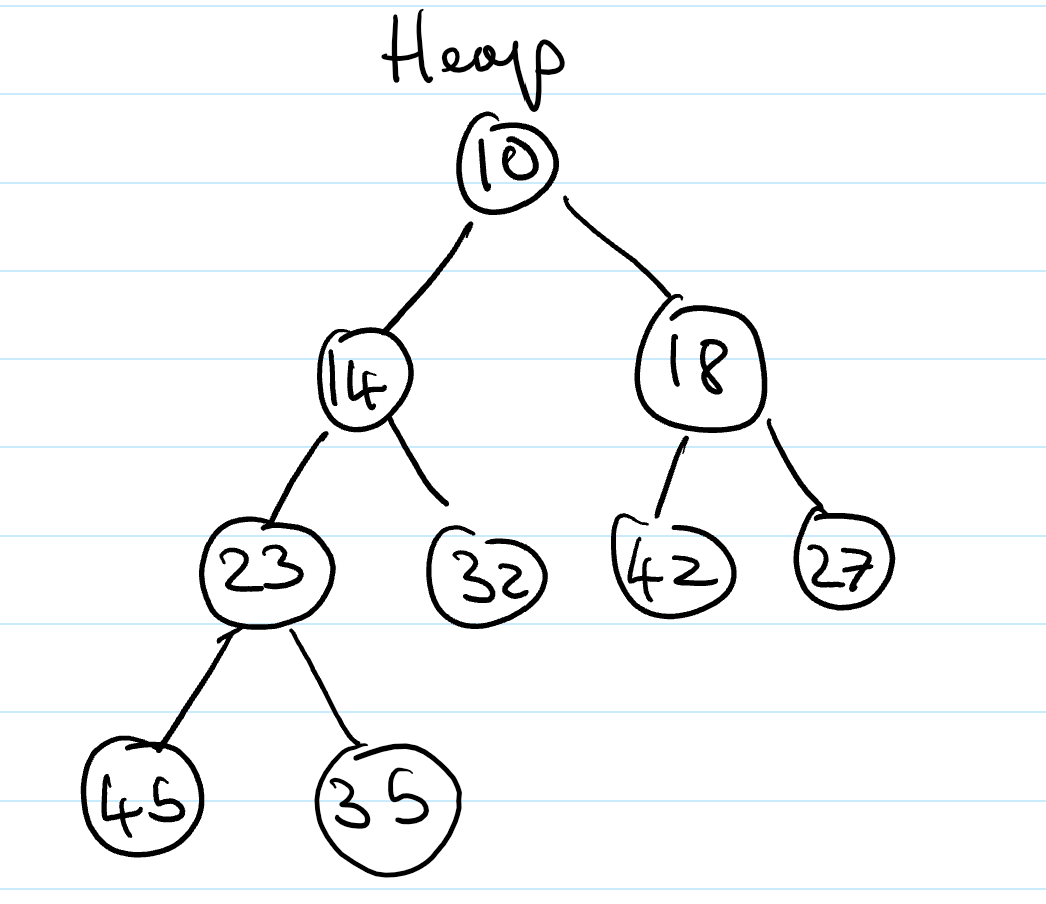 Heap
10
14 18
23 32 42 27
45 35